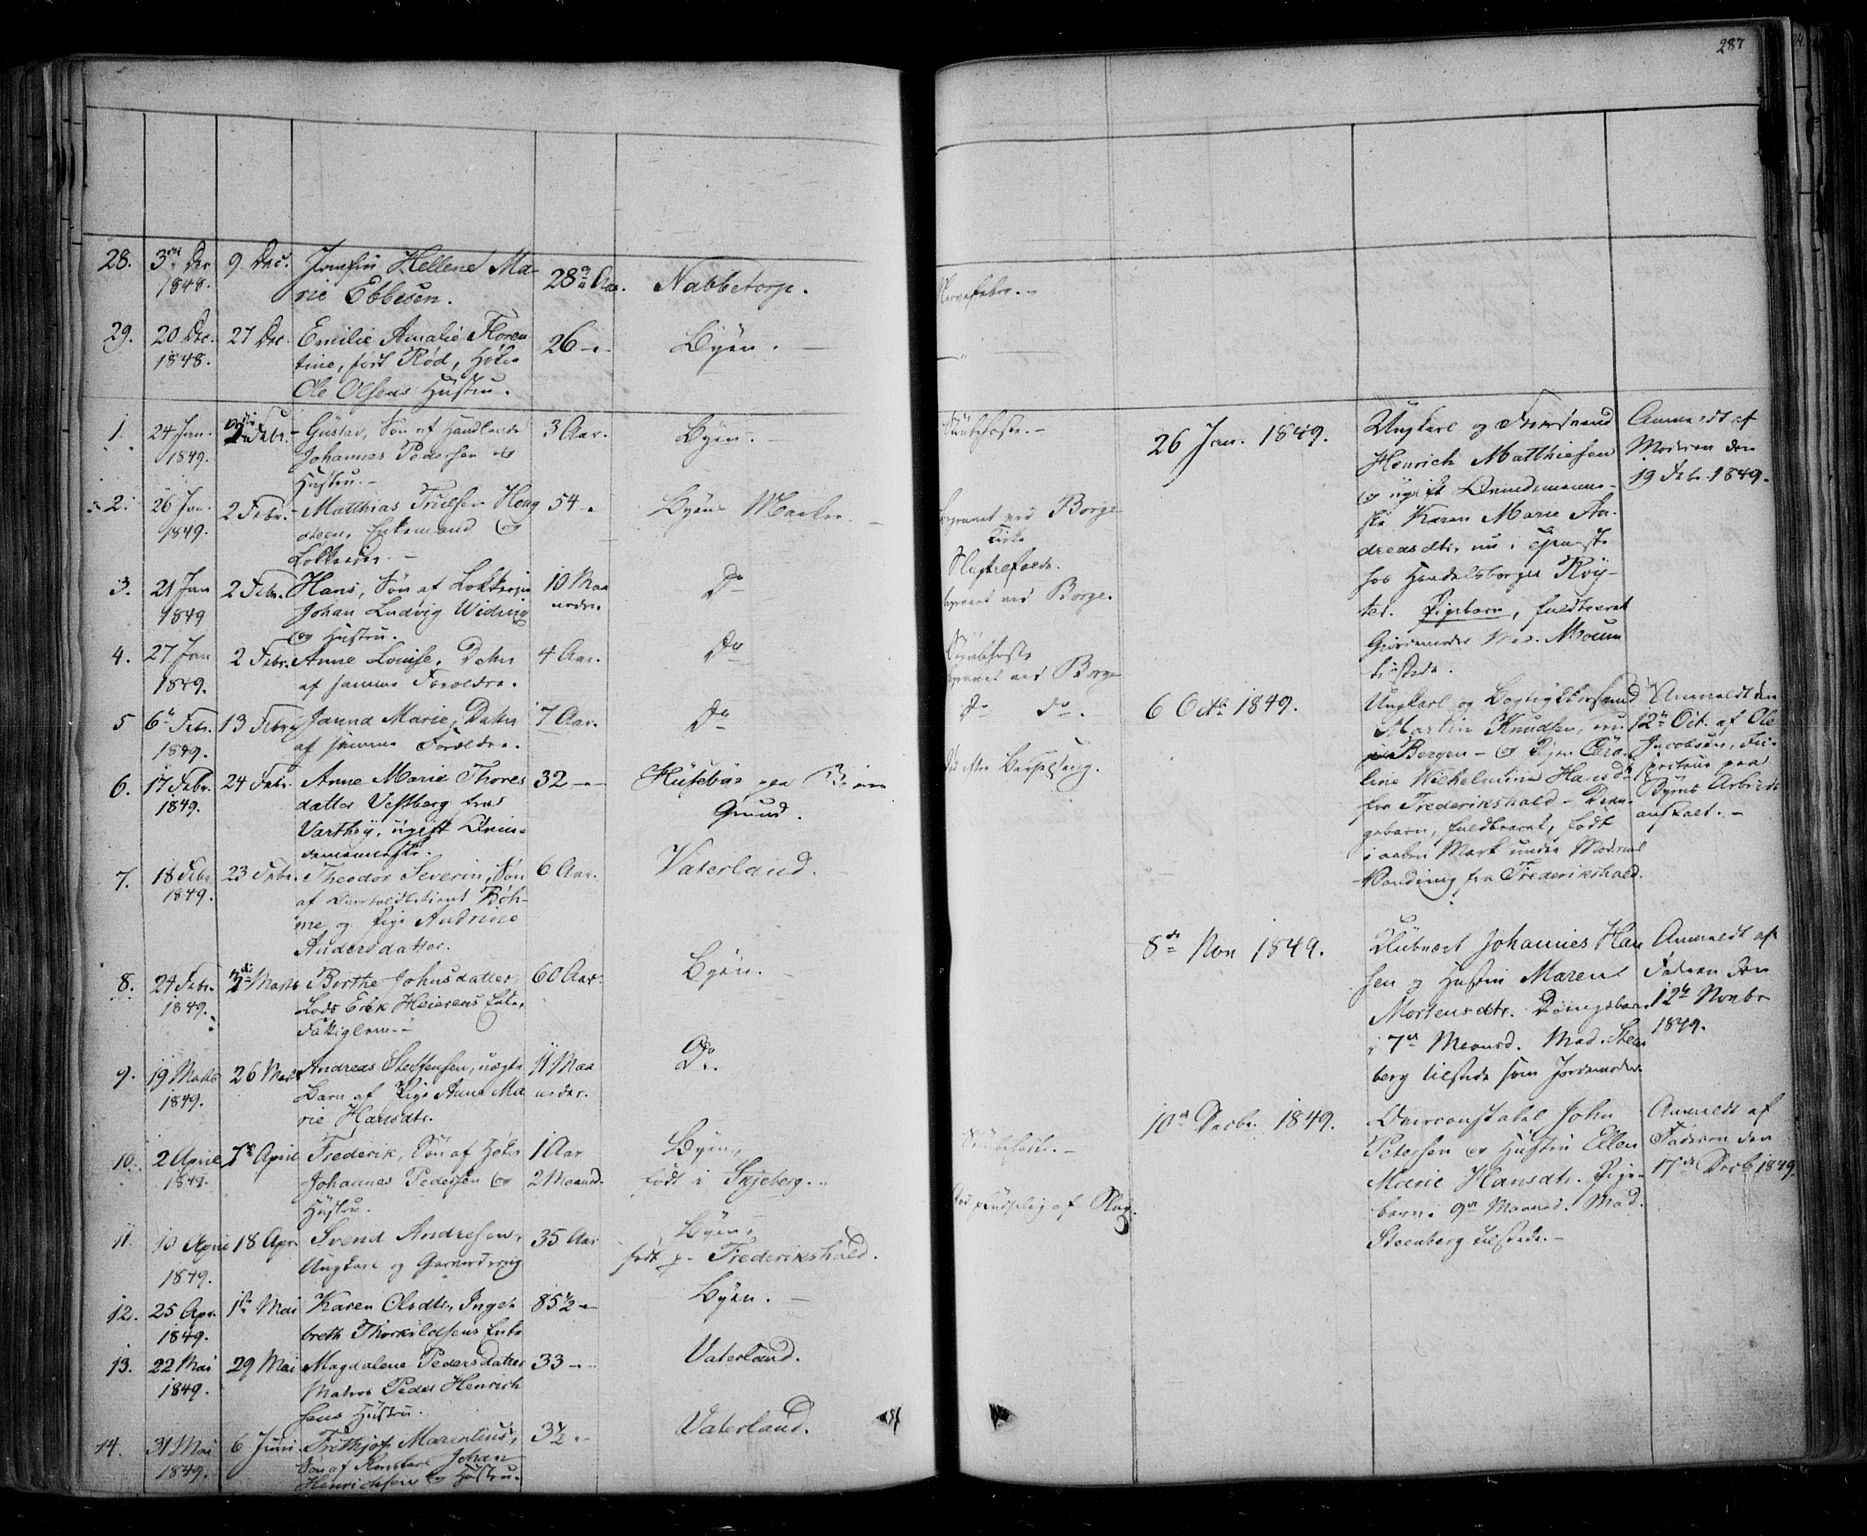 287
28. 3die Dec 1848. 9 Dec. Jomfru Hellene Ma-
rie Ebbesen. 28 Aar. Nabbetorp.
29. 20 Dec. 1848. 27 Dec. Emilie Amalie Floren
tine, født Rød, Høker
Ole Olsens Hustru. 26 Byen.
1. 24 Jan. 1849. Febr. Gustav, Søn af Handlende
Johannes Pedersen og
Hustru. 3 Aar. Byen.
2. 26 Jan. 1849. 2 Febr. Matthias Trulsen Heng
steen, Enkemand og
54 Byens Marker.
begravet ved Borge
Kirke
3. 21 Jan 1849 2 Febr. Hans, Søn af
Johan Ludvig Widing
og Hustru. 10 Maa
neder. Do
begravet ved Borge.
4. 27 Jan 1849. 2 Febr. Anne Louise, Datter
af samme Forældre. 4 Aar. Do
begravet ved Borge
5 6te Febr. 1849. 13 Febr Janna Marie, Datter
af samme Forældre. 7 Aar. Do
Do do.
6. 17 Febr. 1849. 24 Febr. Anne Marie Thores
datter Vestberg fra
ugift Qvin-
demenneske. 32 Husebäe paa Byens
Grund.
Død efter Barselseng.
7. 18 Febr 1849. 23 Febr. Theodor Severin, Søn
af Böh-
me og Pige Andrine
Andersdatter. 6 Aar. Vaterland.
8. 24 Febr. 1849. 2 Marts Berthe Johnsdatter,
Lods Erik Heierens Enke,
Fattiglem. 60 Aar. Byen.
9. 19 Marts 1849. 26 Marts Andreas Steffensen, uægte
Barn af Pige Anne Ma
rie Hansdtr. 11 Maa
neder. Do.
10. 2 April 1849. 7de April Frederik, Søn af Høker
Johannes Pedersen og
Hustru. 1 Aar
2 Maaned. Byen,
født i Skjeberg.
11. 10 April 1849. 18 Apr Svend Andresen,
Ungkarl og Garverdreng 35 Aar Byen,
født p. Frederikshald.
Død pludselig af Slag.
12. 25 Apr. 1849. 1ste Mai Karen Olsdtr, Inge
breth Thorkildsens Enke 85½ Byen.
13. 22 Mai 1849. 29 Mai Magdalene Pedersdatter
Matros Peder Henrich
sens Hustru. 33 Vaterland.
14. 31 Mai 1849. 6 Juni Frithjof Marentius,
Søn af Johan
Henrichsen og Hustru. 3½ Vaterland.
26 Jan. 1849. Ungkarl og
Henrich Matthiesen
og ugift Qvindemenne-
ske Karen Marie An-
dreasdtr. nu i Tjeneste
hos Handelsborger Röy-
ter. Pigebarn, fuldbaaret
Gjordemoder Mad.
tilstede.
Anmeldt af
Moderen den
19 Febr. 1849.
6 Octr 1849. Ungkarl og
Martin Knudsen, nu
Bergen og Pige Caro-
line Wilhelmine Hansdr
fra Frederikshald Dren-
gebarn, fuldbaaret, født
i aaben Mark under Moderens
Vandring fra Frederikshald.
Anmeldt den
12te Oct. af Ole
Jacobsen,
paa
Byens Arbeids
anstalt.
8de Nov 1849. Johannes Han
sen og Hustru Maren
Mortensdtr. Drengebarn
i 7de Maaned. Mad. Steen
berg tilstede som Jordemoder
Anmeldt af
Faderen den
12te Novbr
1849.
10de Decbr. 1849. Overconstabel John
Petersen og Hustru Ellen
Marie Hansdtr. Pige-
barn i 9de Maaned. Mad.
Steenberg tilstede.
Anmeldt af
Faderen den
17de Decb 1849.